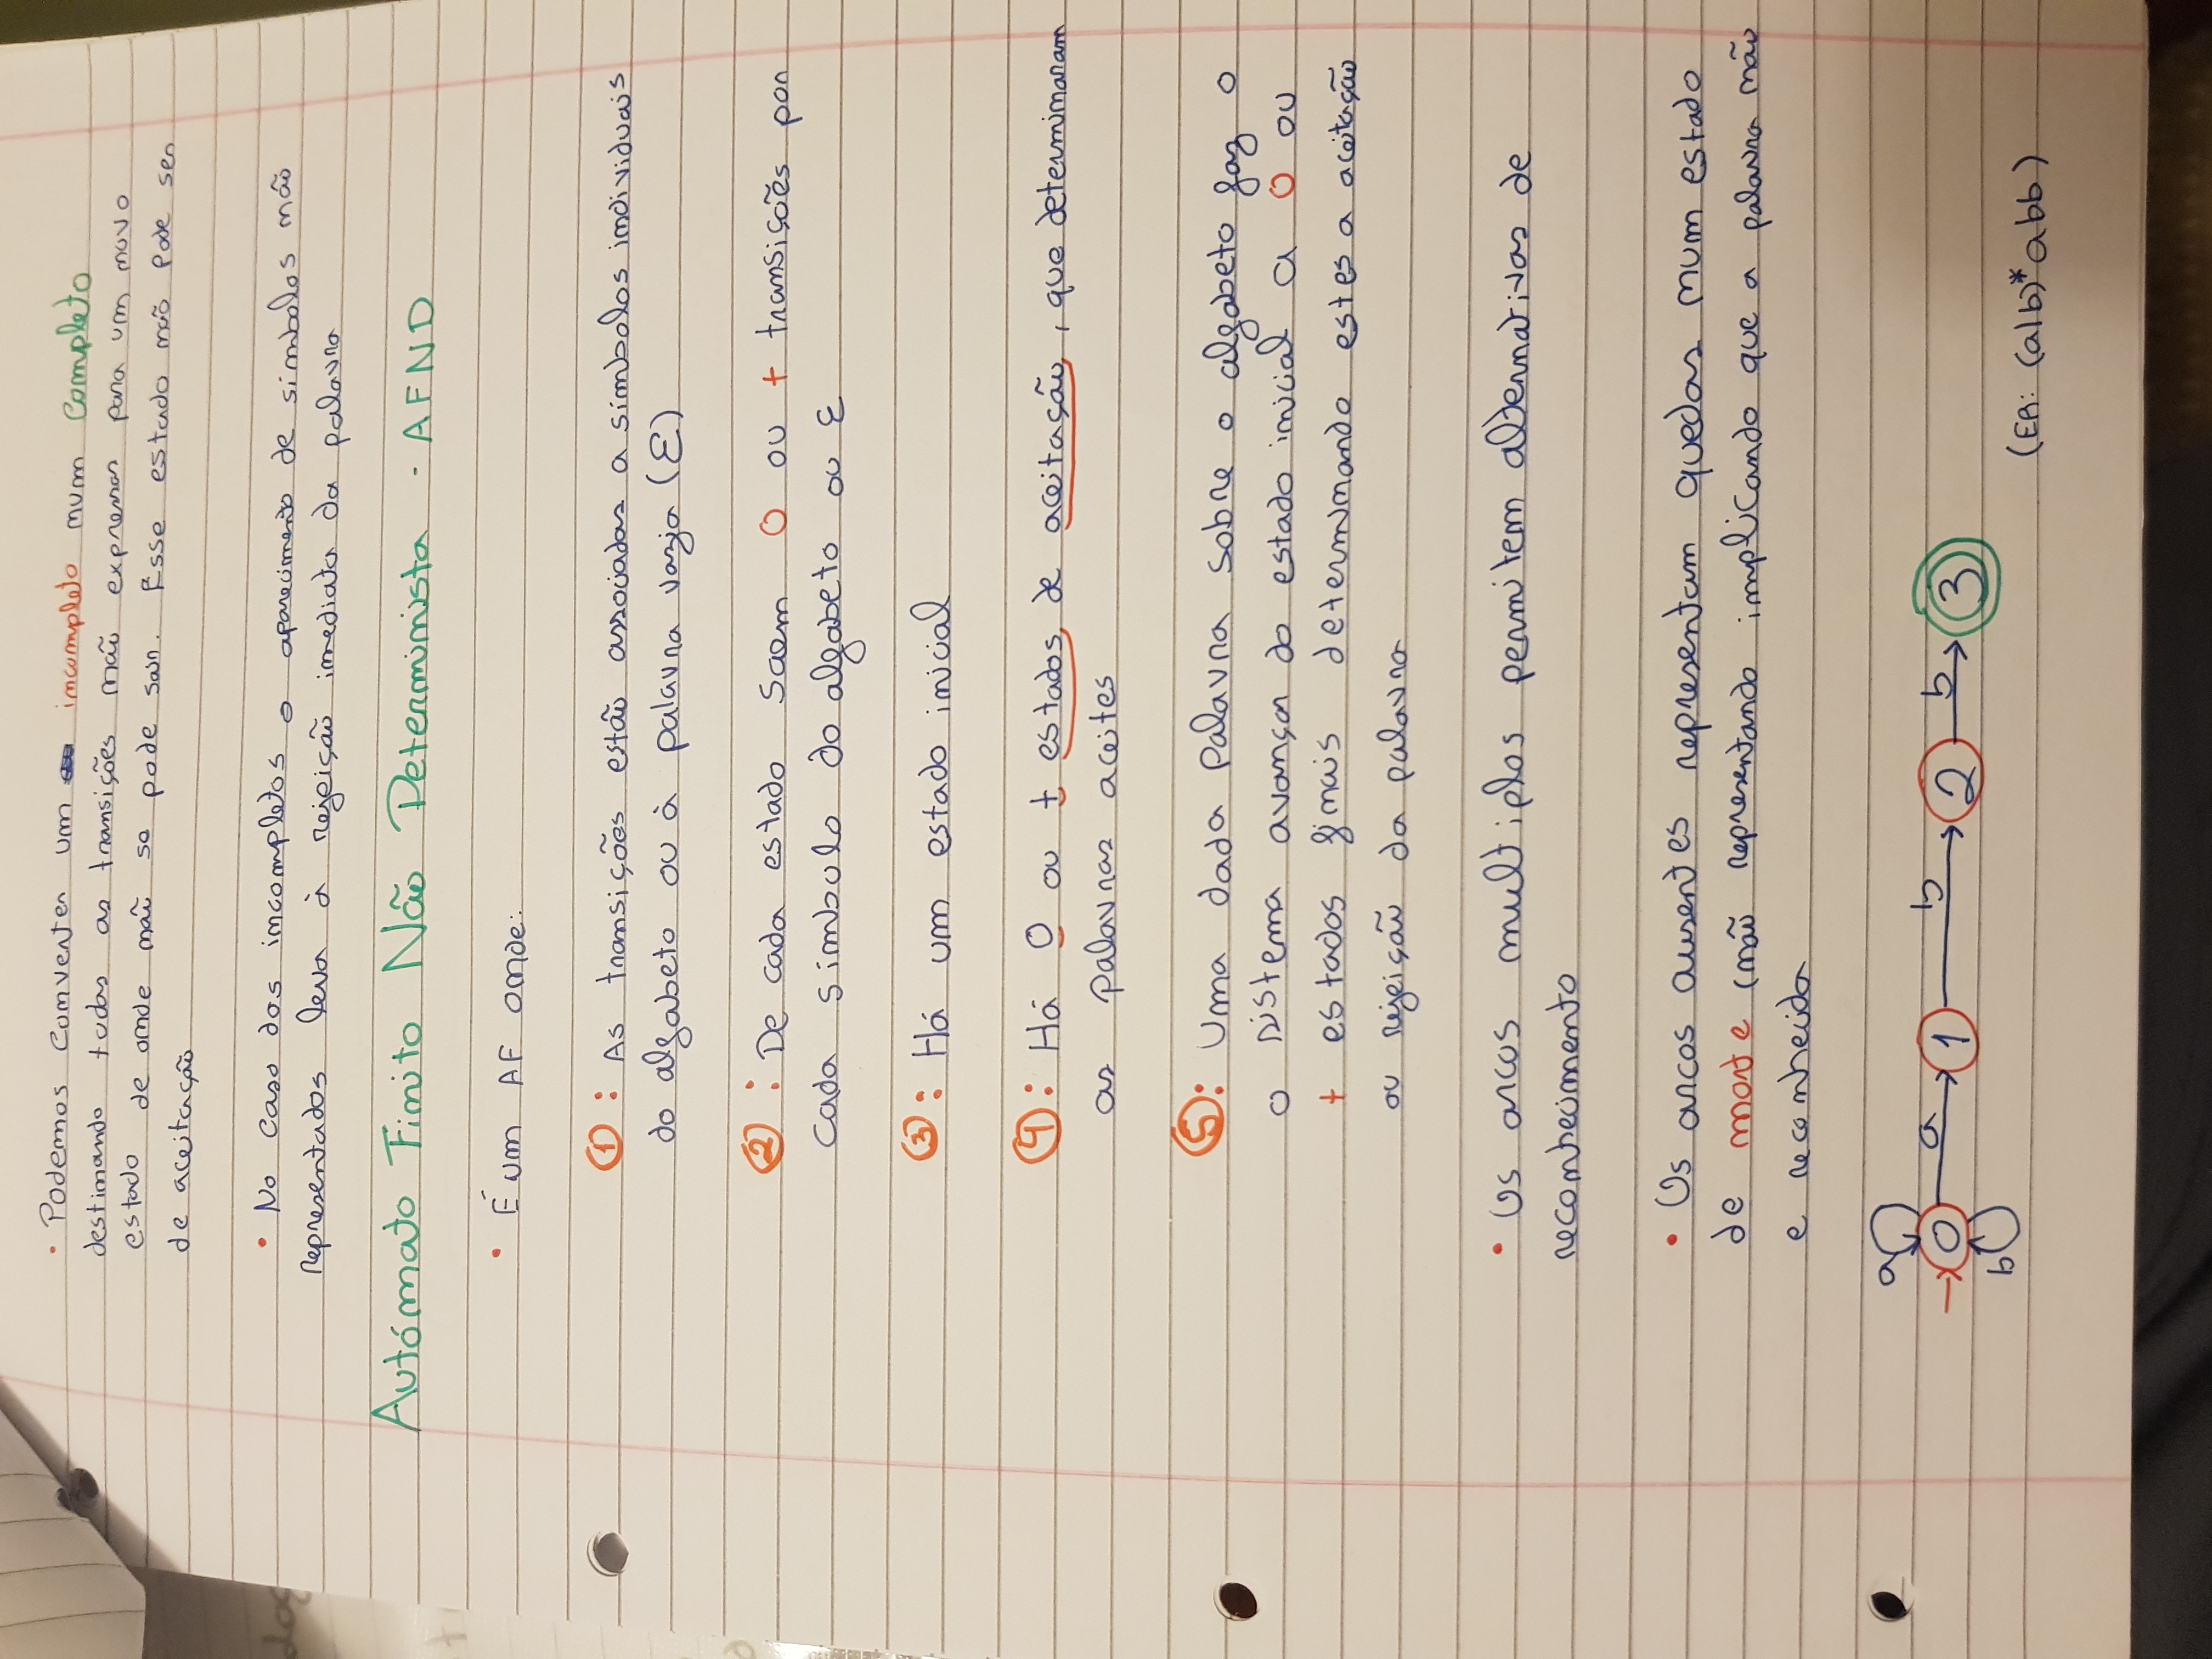 • Podemos converter um incompleto num completo
destinando todas as transições não expressas para um novo
estado de onde não se pode sair. Esse estado não pode ser
de aceitação
• No caso dos incompletos o aparecimento de simbolos não
representados leva à rejeição imediata da palavra
Autómato Finito Não Determinista - AFND
• É um AF onde:
①: As transições estão associadas a simbolos individuais
do alfabeto ou à palavra vazia (ε)
②: De cada estado saem 0 ou + transições por
cada simbolo do alfabeto ou ε
③: Há um estado inicial
④: Há 0 ou + estados de aceitação, que determinaram
as palavras aceites
⑤: Uma dada palavra sobre o alfabeto faz o
o sistema avançar do estado inicial a 0 ou
+ estados finais determinando estes a aceitação
ou rejeição da palavra
• Os arcos multiplos permitem alternativas de
reconhecimento
• Os arcos ausentes representam quedas num estado
de morte (não representando implicando que a palavra não
e reconhecida
a
0 a 1 b 2 b 3
b
(ER: (a|b)*abb)